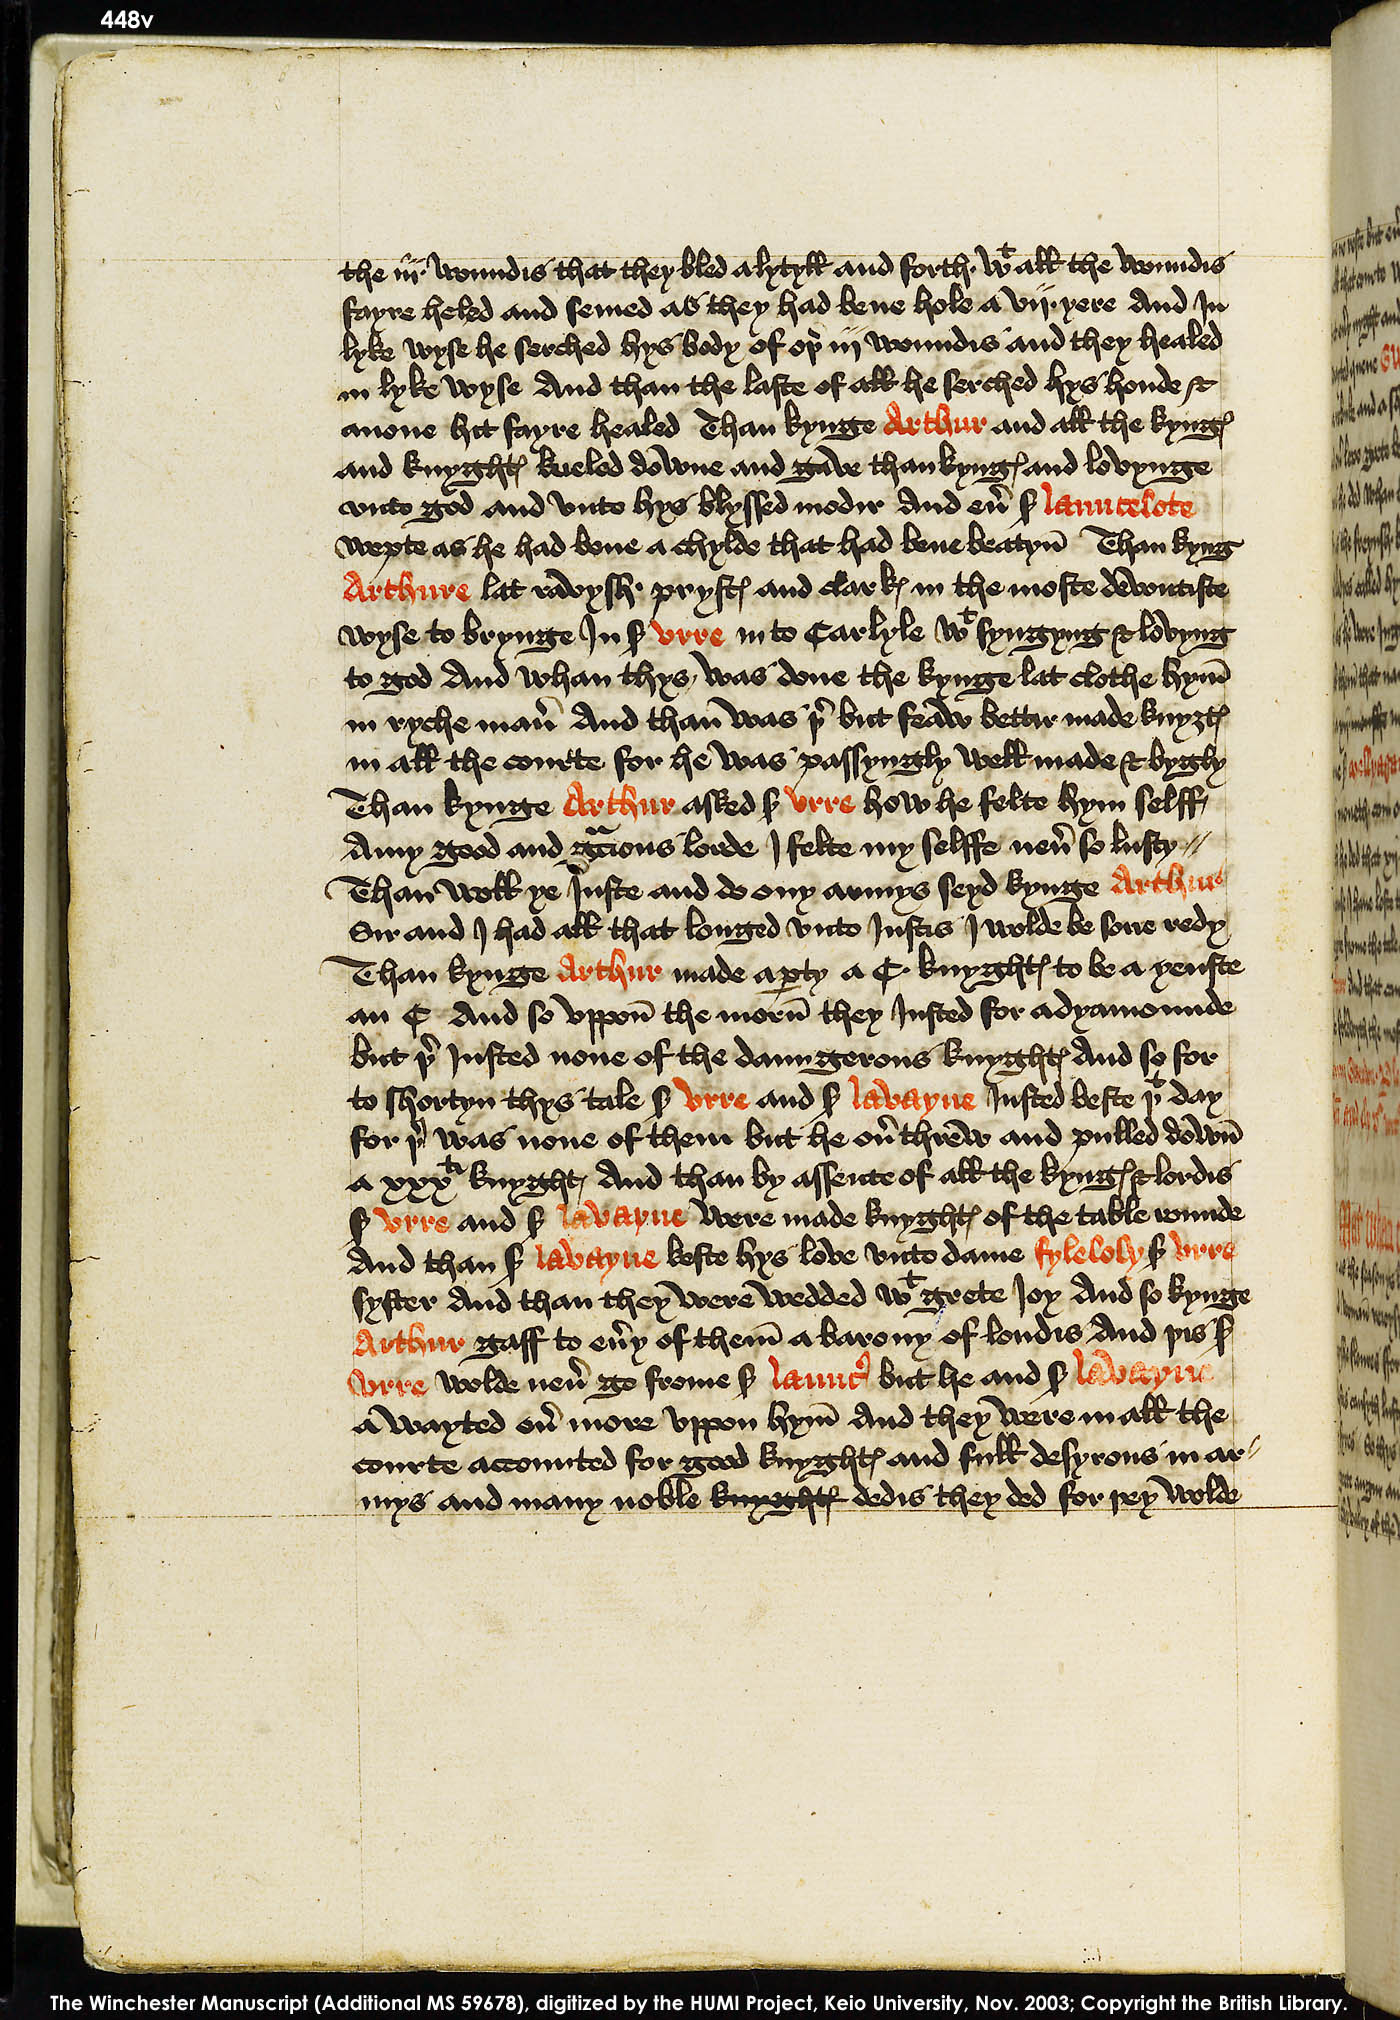 448v
the iij. woundis that they bled a lytyll and forth wt all the woundis
fayre heled and semed as they had bene hole a vij. yere And In
lyke wyse he serched hys body of oþr iij woundis and they healed
in lyke wyse And than the laste of all he serched hys honde &
anone hit fayre healed Than kynge Arthur and all the kyngꝭ
and knyghtꝭ kneled downe and gave thankyngꝭ and lovynge
unto god and unto hys blyssed modir And eu̾ ẜ launcelote
wepte as he had bene a chylde that had bene beatyn̄ Than kyng
Arthure lat ravysh prystꝭ and clarkꝭ in the moste devoutiste
wyse to brynge In ẜ vrre in to Carlyle wt syngyng & lovyng
to god And whan thys was done the kynge lat clothe hym̄
in ryche man̾ And than̄ was þr̾ but feaw bettir made knyȝtꝭ
in all the courte for he was passyngly well made & bygly
Than kynge Arthur asked ẜ vrre how he felte hym selff
A my good and gracious lorde I felte my selffe neu̾ so lusty //
Than woll ye Juste and do ony armys seyd kynge Arthur
Sir and I had all that longed unto Justis I wolde be sone redy
Than kynge Arthur made a ꝑty a C. knyghtꝭ to be a yenste
an C And so vppon̄ the morn̄ they Justed for a dyamounde
but þr̾ Justed none of the daungerous knyghtꝭ And so for
to shortyn thys tale ẜ vrre and ẜ lavayne Justed beste þt day
for þr̾ was none of them but he ou̾threw and pulled down̄
a xxxti knyghtꝭ And than by assente of all the kyngꝭ & lordis
ẜ vrre and ẜ lavayne were made knyghtꝭ of the table rounde
And than ẜ lavayne keste hys love unto dame fyleloly ẜ vrre
syster And than they were wedded wt grete Joy And so kynge
Arthur gaff to eu̾y of them̄ a barony of londis And þis ẜ
vrre wolde neu̾ go frome ẜ launc̾ but he and ẜ lavayne
a wayted eu̾ more vppon hym̄ And they were in all the
courte accounted for good knyghtꝭ and full desyrous in ar//
mys and many noble knyghtꝭ dedis they ded for þey wolde
The Winchester Manuscript (Additional MS 59678), digitized by the HUMI Project, Keio University, Nov. 2003; Copyright the British Library.